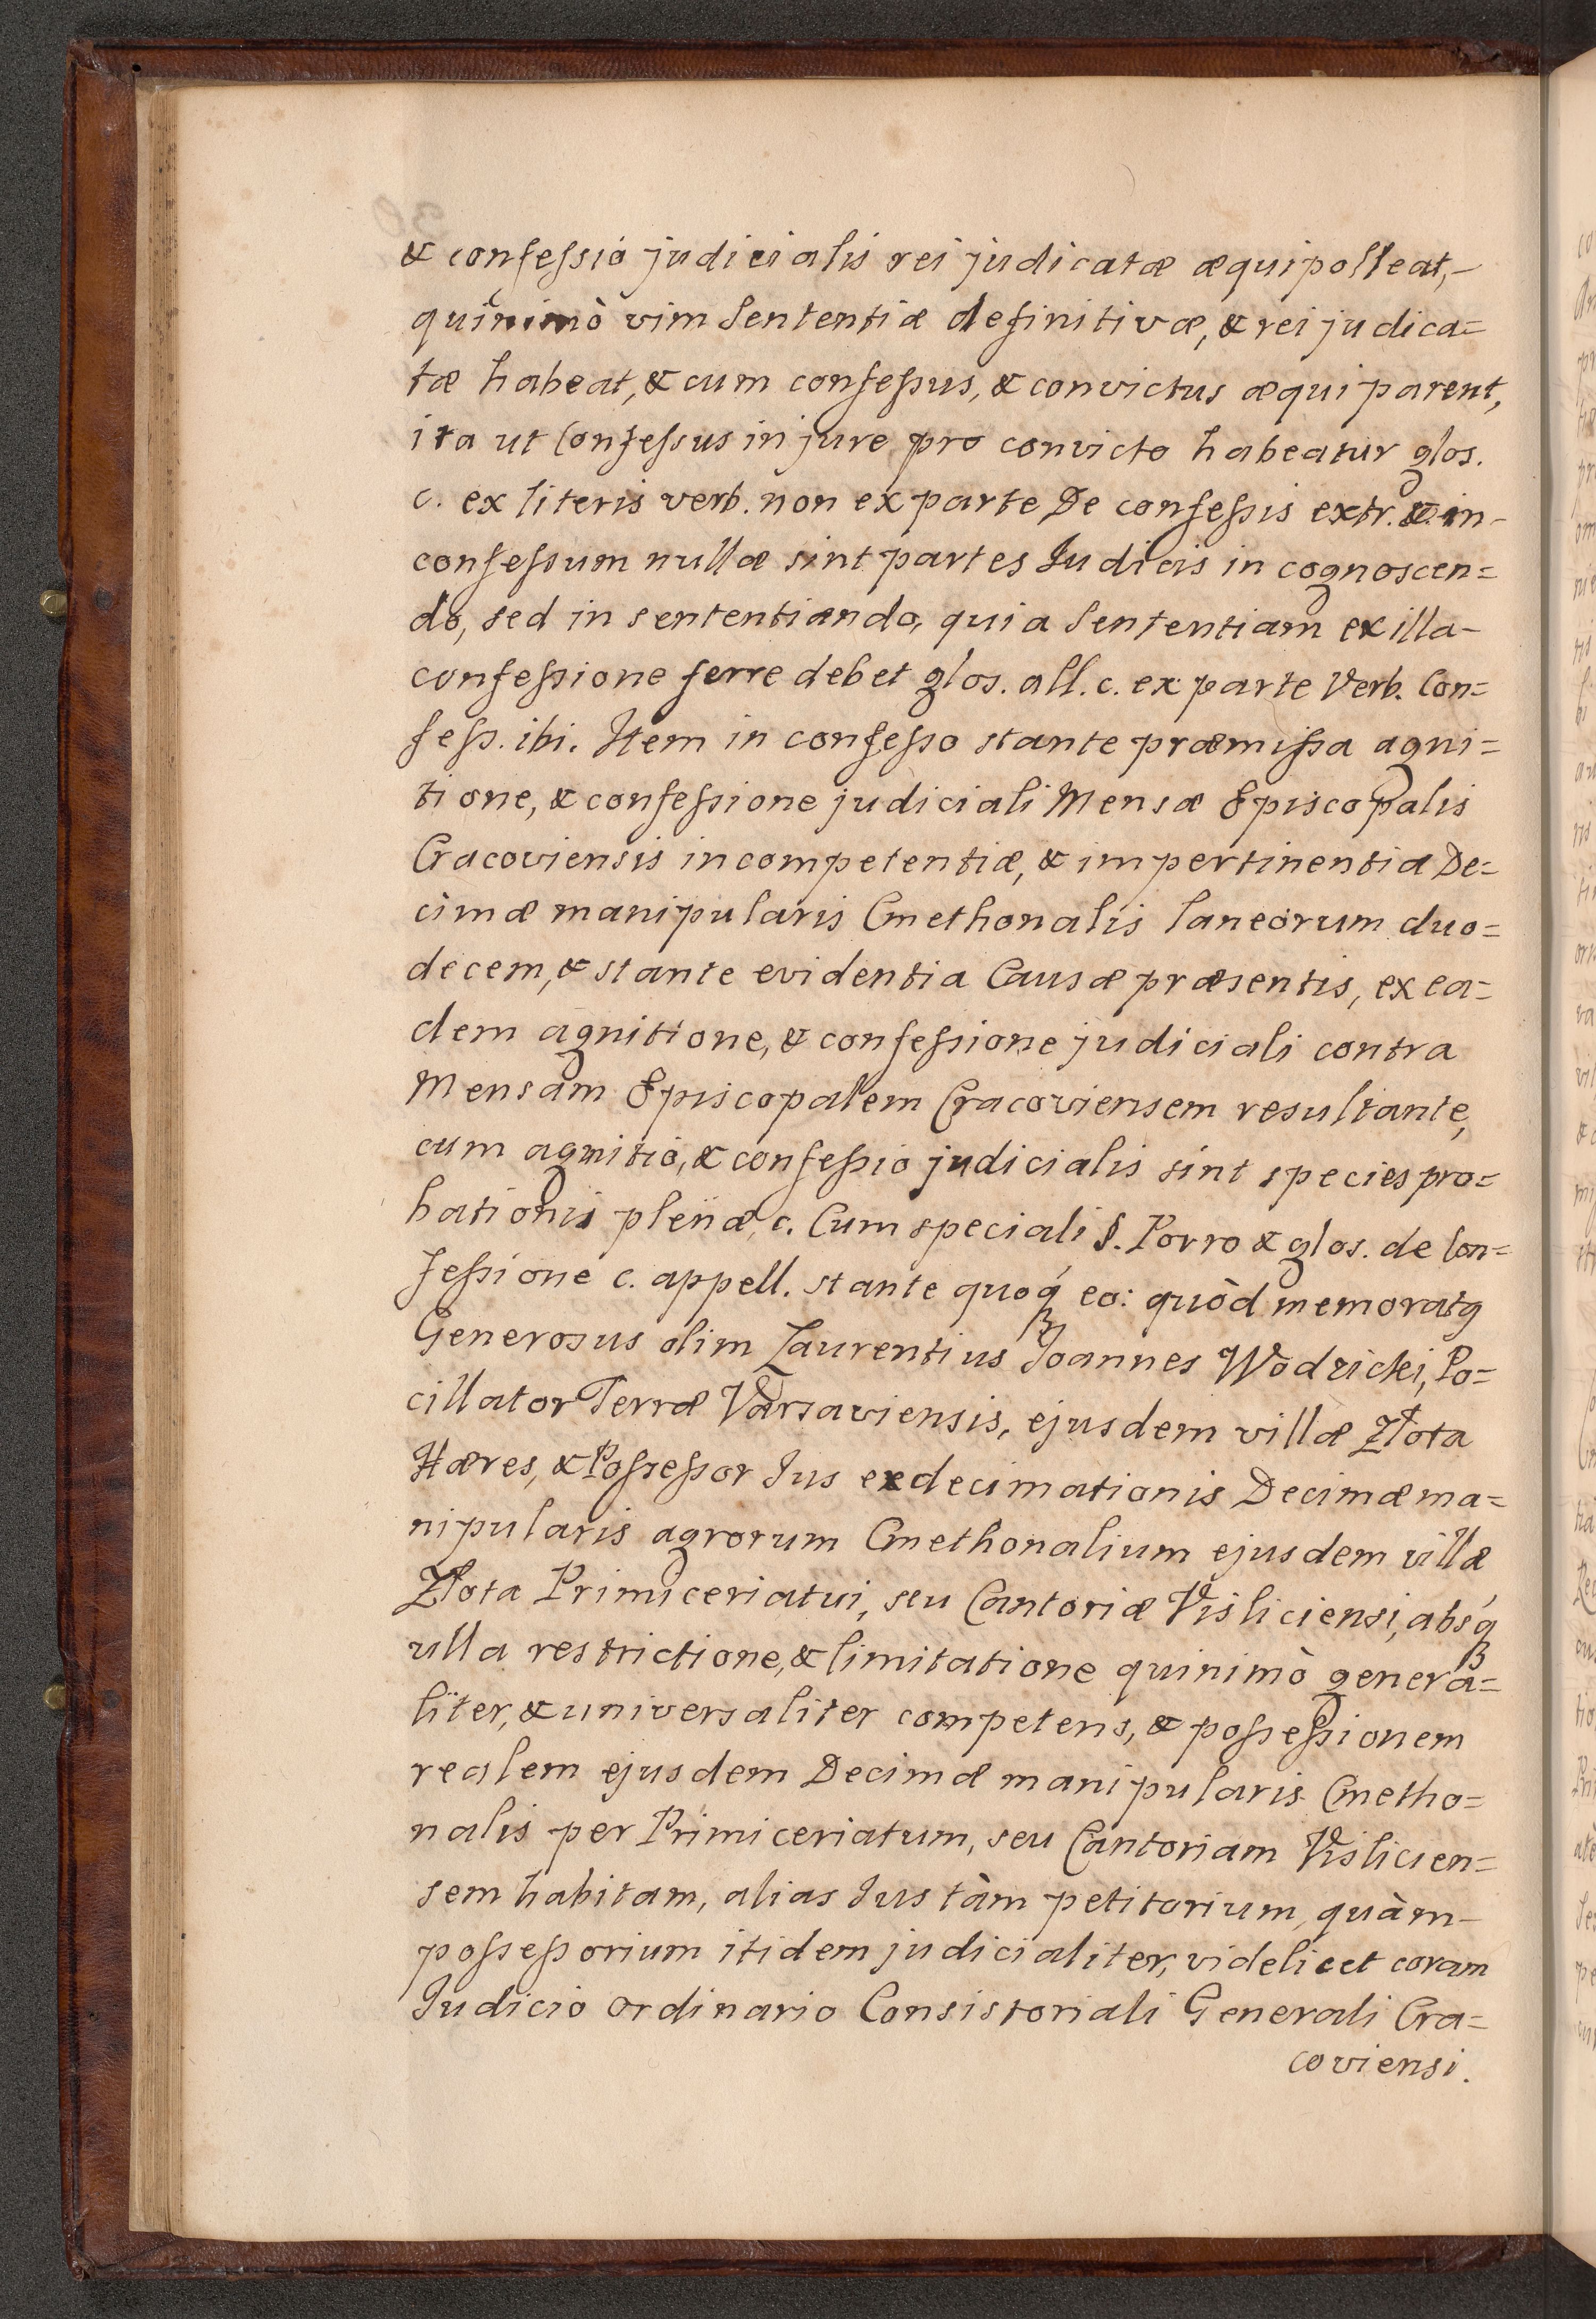 & confessio judicialis rei judicatæ æquipolleat,-
quinimò vim Sententiæ definitivæ, & rei judica=
tæ habeat, & cum confessus, & convictus æquiparent,
ita ut Confessus in jure pro convicto habeatur glos.
c. ex literis verb. non ex parte De confessis extr. & in-
confessum nullæ sint partes Judicis in cognoscen=
do, sed in sententiando, quia Sententiam ex illa-
confessione ferre debet glos. all. c. ex parte Verb. Con=
fess. ibi. Item in confesso stante præmissa agni=
tione, & confessione judiciali Mensæ Episcopalis
Cracoviensis incompetentiæ, & impertinentia De=
cimæ manipularis Cmethonalis laneorum duo=
decem, & stante evidentia Causæ præsentis, ex ea=
dem agnitione, & confessione judiciali contra
Mensam Episcopalem Cracoviensem resultante,
cum agnitio, & confessio judicialis sint species pro=
bationis plenæ, c. Cum speciali §. Porro & glos. de Con=
fessione c. appell. stante quoq́ꝫ eo: quòd memoratꝯ
Generosus olim Laurentius Joannes Wodzicki, Po=
cillator Terræ Varsaviensis, ejusdem villæ Złota
Hæres, & Possessor Jus exdecimationis Decimæ ma=
nipularis agrorum Cmethonalium ejusdem villæ
Złota Primiceriatui, seu Cantoriæ Visliciensi, absq́ꝫ
ulla restrictione, & limitatione quinimò genera=
liter, & universaliter competens, & possessionem
realem ejusdem Decimæ manipularis Cmetho=
nalis per Primiceriatum, seu Cantoriam Vislicien=
sem habitam, alias Jus tàm petitorium, quàm-
possessorium itidem judicialiter, videlicet coram
Judicio Ordinario Consistoriali Generali Cra=
coviensi.